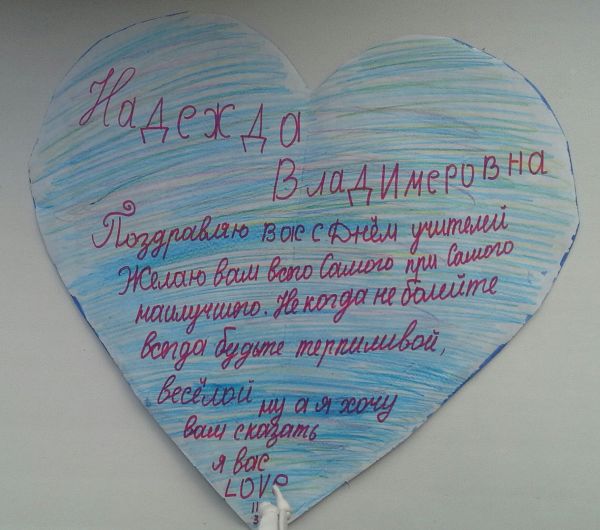 Надежда
Владимеровна
Поздравляю вас с Днём учителей
Желаю вам всго Самого при Самого
наилучшего. Не когда не болейте
всегда будьте терпиливой,
весёлой ну а я хочу
вам сказать
я вас
LOVE